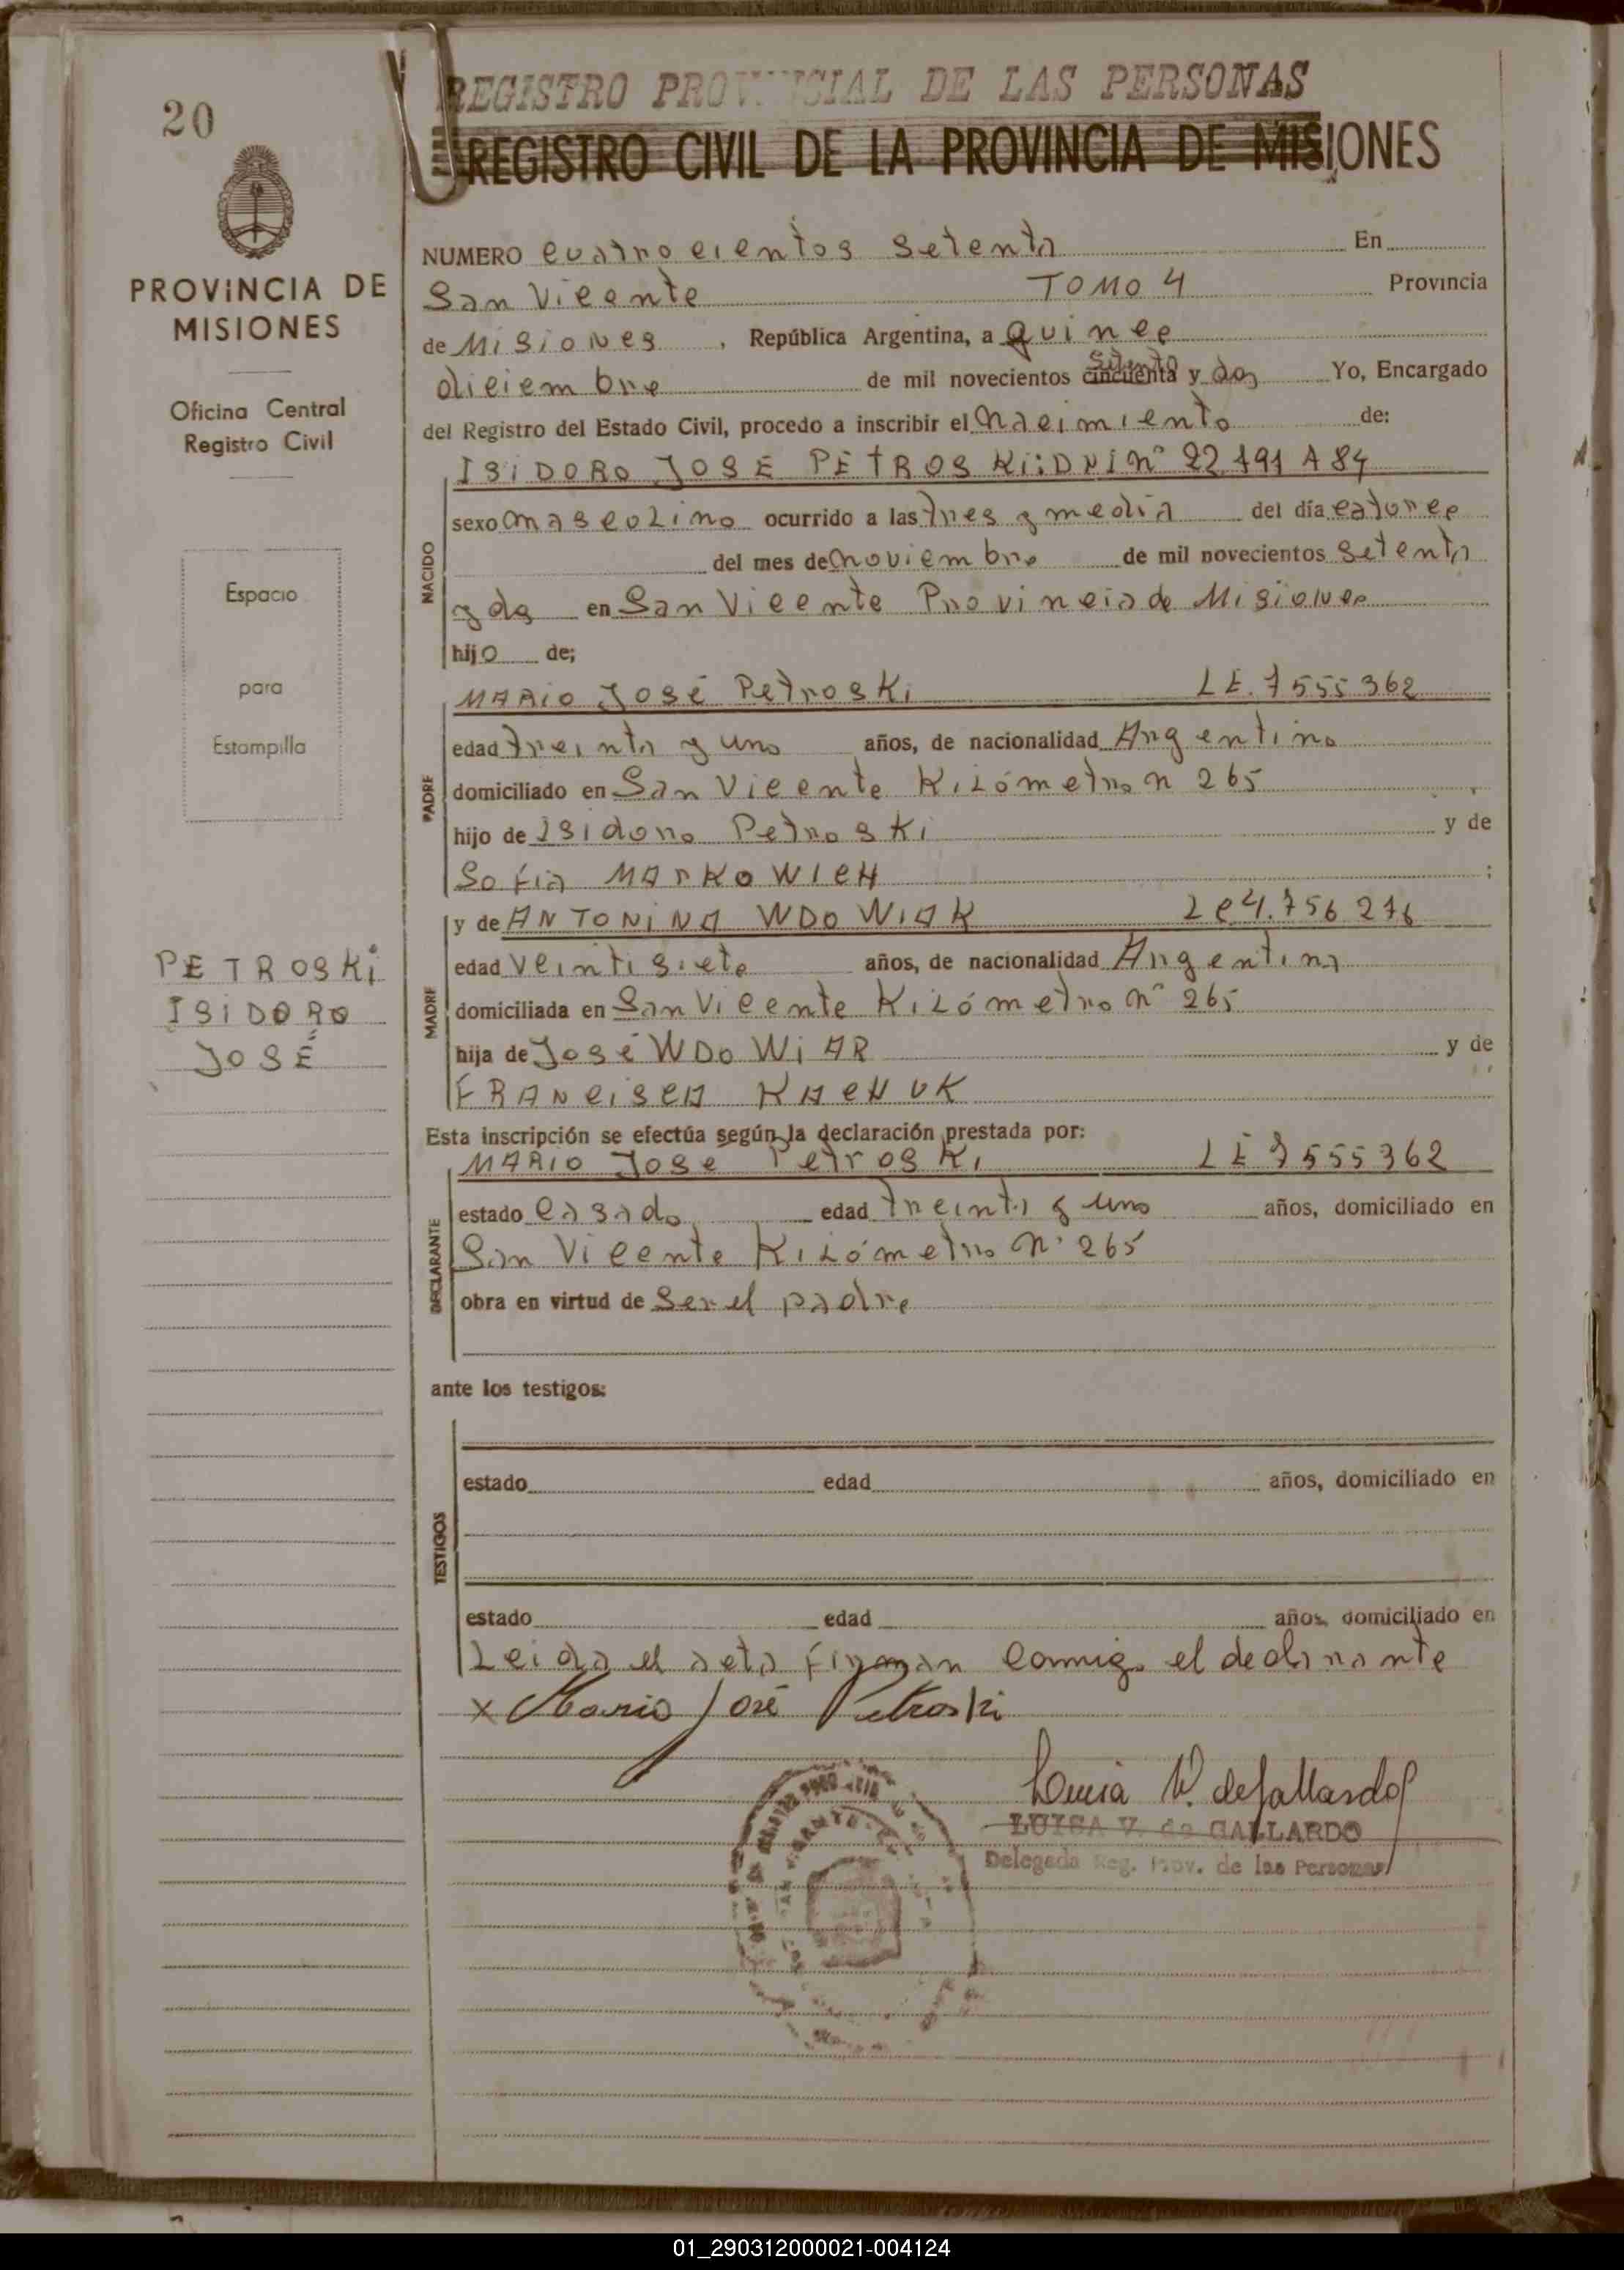 20
REGISTRO PROVINCIAL DE LAS PERSONAS
REGISTRO CIVIL DE LA PROVINCIA DE MISIONES
PROVINCIA DE
MISIONES
Oficina Central
Registro Civil
Espacio
para
Estampilla
PETROSKI
ISIDORO
JOSÉ
NUMERO cuatrocientos setenta En
San Vicente TOMO 4 Provincia
de Misiones , República Argentina, a quince
diciembre de mil novecientos cincuenta setenta y dos Yo, Encargado
del Registro del Estado Civil, procedo a inscribir el nacimiento de:
ISIDORO JOSE PETROSKI:DNI nº
NACIDO
sexo masculino ocurrido a las tres y media del día catorce
del mes de noviembre de mil novecientos setenta
y dos en San Vicente Provincia de Misiones
hijo de;
PADRE
MARIO JOSÉ PETROSKI LE. 7555362
edad treinta y uno años, de nacionalidad Argentino
domiciliado en San Vicente Kilómetro n 265
hijo de Isidoro Petroski y de
Sofia MARKOWICH ;
MADRE
y de ANTONINA WDOWIAK
edad veintisiete años, de nacionalidad Argentina
domiciliada en San Vicente Kilómetro nº 265
hija de José WDOWIAR y de
FRANCISCA KACHUK
Esta inscripción se efectúa según la declaración prestada por:
DECLARANTE
MARIO JOSE PETROSKI LE 7555362
estado casado edad treinta y uno años, domiciliado en
San Vicente Kilómetro nº 265
obra en virtud de Ser el padre
ante los testigos:
TESTIGOS
estado edad años, domiciliado en
estado edad años, domiciliado en
Leida el acta firman conmigo el declarante
x Mario José Petroski
Luisa V. de Gallardo
LUISA V. de GALLARDO
Delegada Reg. Prov. de las Personas
01_290312000021-004124